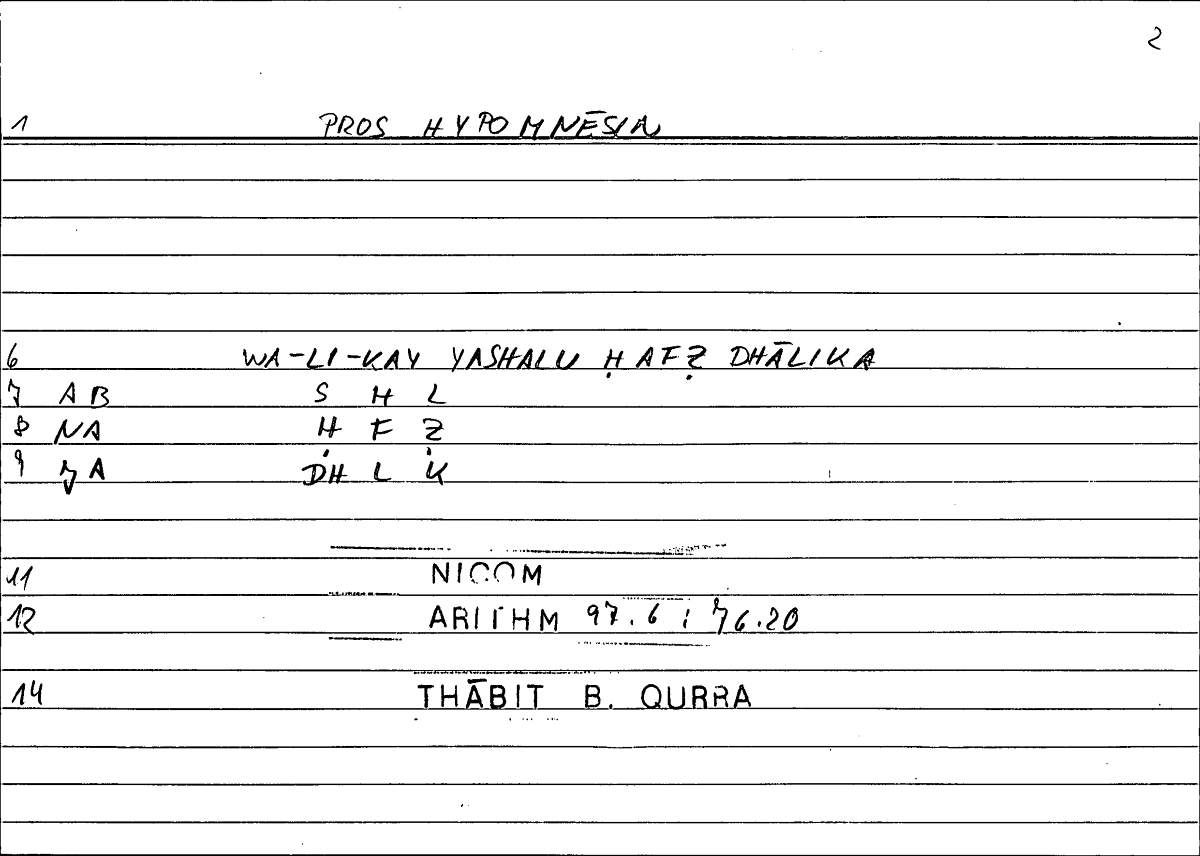 2
1 PROS HYPOMNĒSIN
6 WA-LI-KAY YASHALU ḤAFẒ DHĀLIKA
7 AB S H L
8 NA Ḥ F Ẓ
9 7A DH L K
11 NICOM
12 ARITHM 97.6 ; 76.20
14 THĀBIT B. QURRA